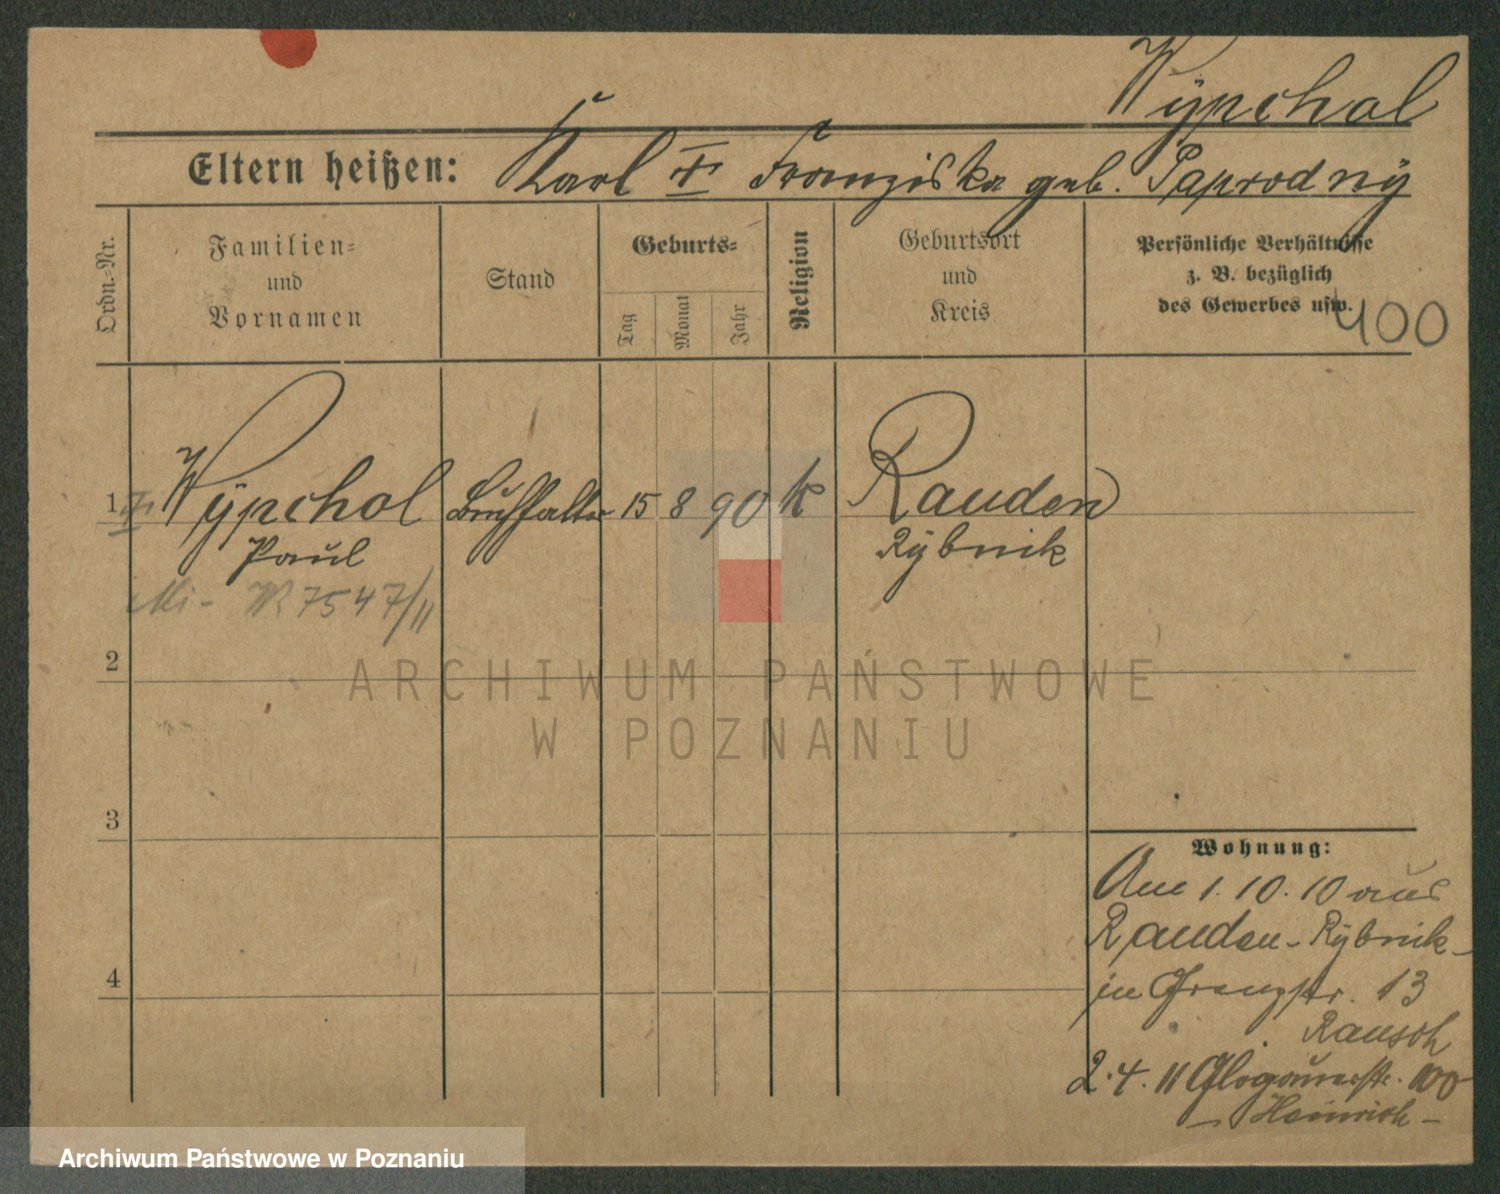 Wypchol
Eltern heißen: Karl Franziska geb. Paprodny
Ordn.-Nr.
Familien- und Vornamen
Stand
Geburts-
Tag
Monat
Jahr
Religion
Geburtsort und Kreis
Persönliche Verhältnisse
z. B. bezüglich
des Gewerbes usw.
400
1 Wypchol Buchhalter 15 8 90 k Rauden
Paul Rybnik
7547/II
2
3
4
Wohnung:
Am 1. 10. 10 aus
Rauden-Rybnik-
in 13
Rausch
2. 4. 11 Glogauerstr. 100
- Heinrich -
ARCHIWUM PAŃSTWOWE
W POZNANIU
Archiwum Państwowe w Poznaniu